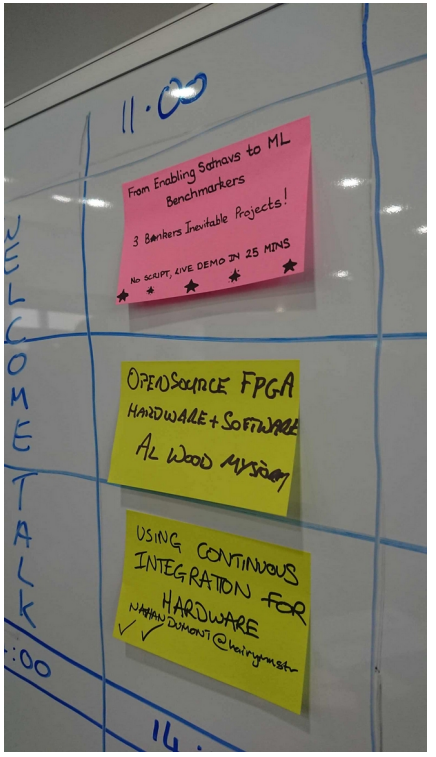 11:00
WELCOME TALK
From Enabling Satnavs to ML
Benchmarkers
3 Bonkers Inevitable Projects!
NO SCRIPT, LIVE DEMO IN 25 MINS
OPENSOURCE FPGA
HARDWARE + SOFTWARE
AL WOOD
USING CONTINUOUS
INTEGRATION FOR
HARDWARE
NATHAN DUMONT @hairymnstr
:00
14